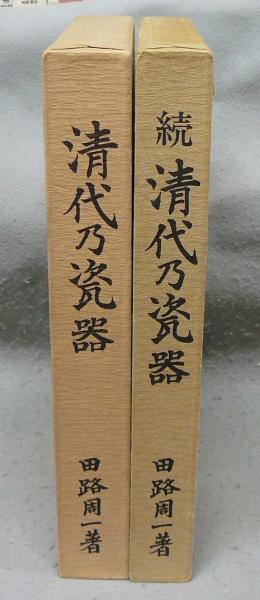 清代乃瓷器
田路周一著
続
清代乃瓷器
田路周一著